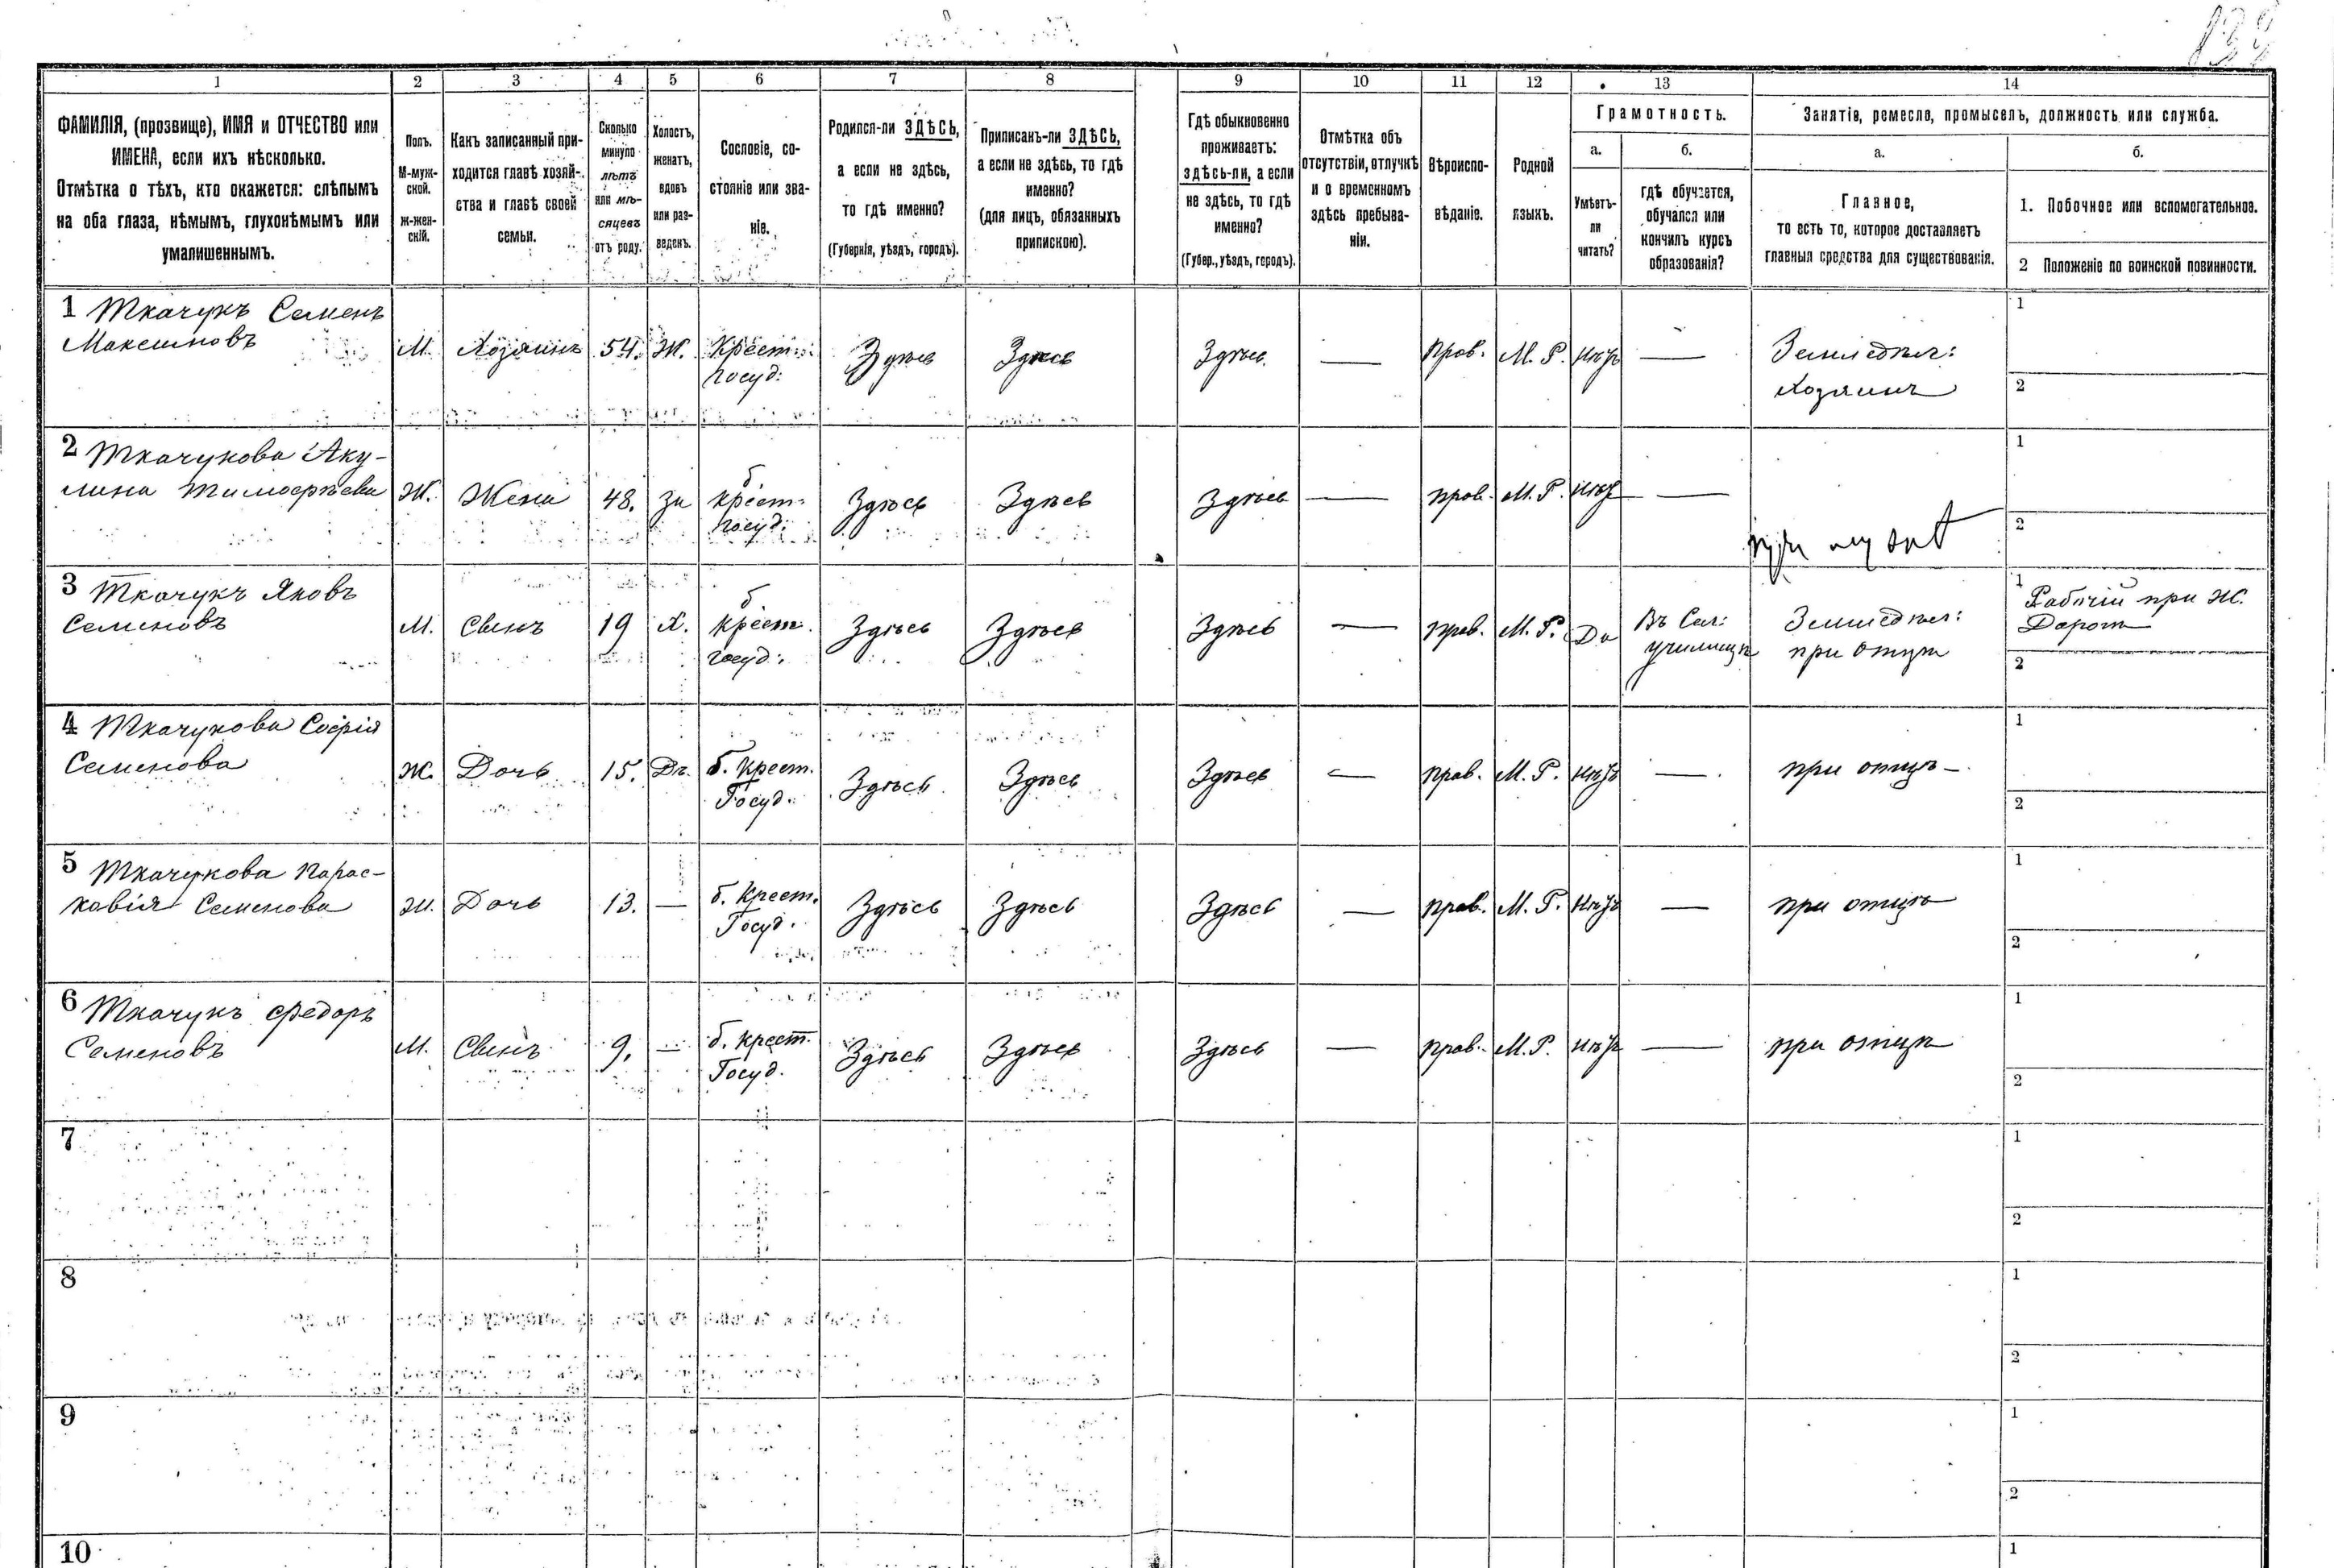 1 2 3 4 5 6 7 8 9 10 11 12 13 14
ФАМИЛІЯ, (прозвище), ИМЯ и ОТЧЕСТВО или
ИМЕНА, если ихъ нѣсколько.
Отмѣтка о тѣхъ, кто окажется: слѣпымъ
на оба глаза, нѣмымъ, глухонѣмымъ или
умалишеннымъ.
Полъ.
М-муж-
ской.
ж-жен-
скій.
Какъ записанный при-
ходится главѣ хозяй-
ства и главѣ своей
семьи.
Сколько
минуло
лѣтъ
или мѣ-
сяцевъ
отъ роду.
Холостъ,
женатъ,
вдовъ
или раз-
веденъ.
Сословіе, со-
стояніе или зва-
ніе.
Родился-ли ЗДѢСЬ,
а если не здѣсь,
то гдѣ именно?
(Губернія, уѣздъ, городъ).
Приписанъ-ли ЗДѢСЬ,
а если не здѣсь, то гдѣ
именно?
(для лицъ, обязанныхъ
припискою).
Гдѣ обыкновенно
проживаетъ:
здѣсь-ли, а если
не здѣсь, то гдѣ
именно?
(Губер., уѣздъ, городъ).
Отмѣтка объ
отсутствіи, отлучкѣ
и о временномъ
здѣсь пребыва-
ніи.
Вѣроиспо-
вѣданіе.
Родной
языкъ.
Грамотность.
а.
Умѣетъ-
ли
читать?
б.
гдѣ обучается,
обучался или
кончилъ курсъ
образованія?
Занятіе, ремесло, промыселъ, должность или служба.
а.
Главное,
то есть то, которое доставляетъ
главныя средства для существованія.
б.
1. Побочное или вспомогательное.
2 Положеніе по воинской повинности.
1 Ткачукъ Семенъ
Максимовъ
М. Хозяинъ 54. Ж. Крест.
Госуд: Здѣсь Здѣсь Здѣсь — Прав. М. Р. нѣтъ — Земледѣл:
Хозяинъ
1
2
2 Ткачукова Аку-
лина Тимофѣева
Ж. Жена 48. За б
крест.
Госуд: Здѣсь Здѣсь Здѣсь — прав. М. Р. нѣтъ —
при мужѣ
1
2
3 Ткачукъ Яковъ
Семеновъ
М. Сынъ 19 Х. б
крест.
госуд: Здѣсь Здѣсь Здѣсь — прав. М. Р. Да Въ Сел:
училищѣ Земледѣл:
при отцѣ
1 Рабочій при Ж.
Дорогѣ
2
4 Ткачукова Софія
Семенова
Ж. Дочь 15. Дѣ. б. Крест.
Госуд. Здѣсь Здѣсь Здѣсь — прав. М. Р. нѣтъ — при отцѣ —
1
2
5 Ткачукова Парас-
ковія Семенова
Ж. Дочь 13. — б. Крест.
Госуд. Здѣсь Здѣсь Здѣсь — прав. М. Р. нѣтъ — при отцѣ
1
2
6 Ткачукъ Федоръ
Семеновъ
М. Сынъ 9. — б. Крест.
Госуд. Здѣсь Здѣсь Здѣсь — прав. М. Р. нѣтъ — при отцѣ
1
2
7
1
2
8
1
2
9
1
2
10
1